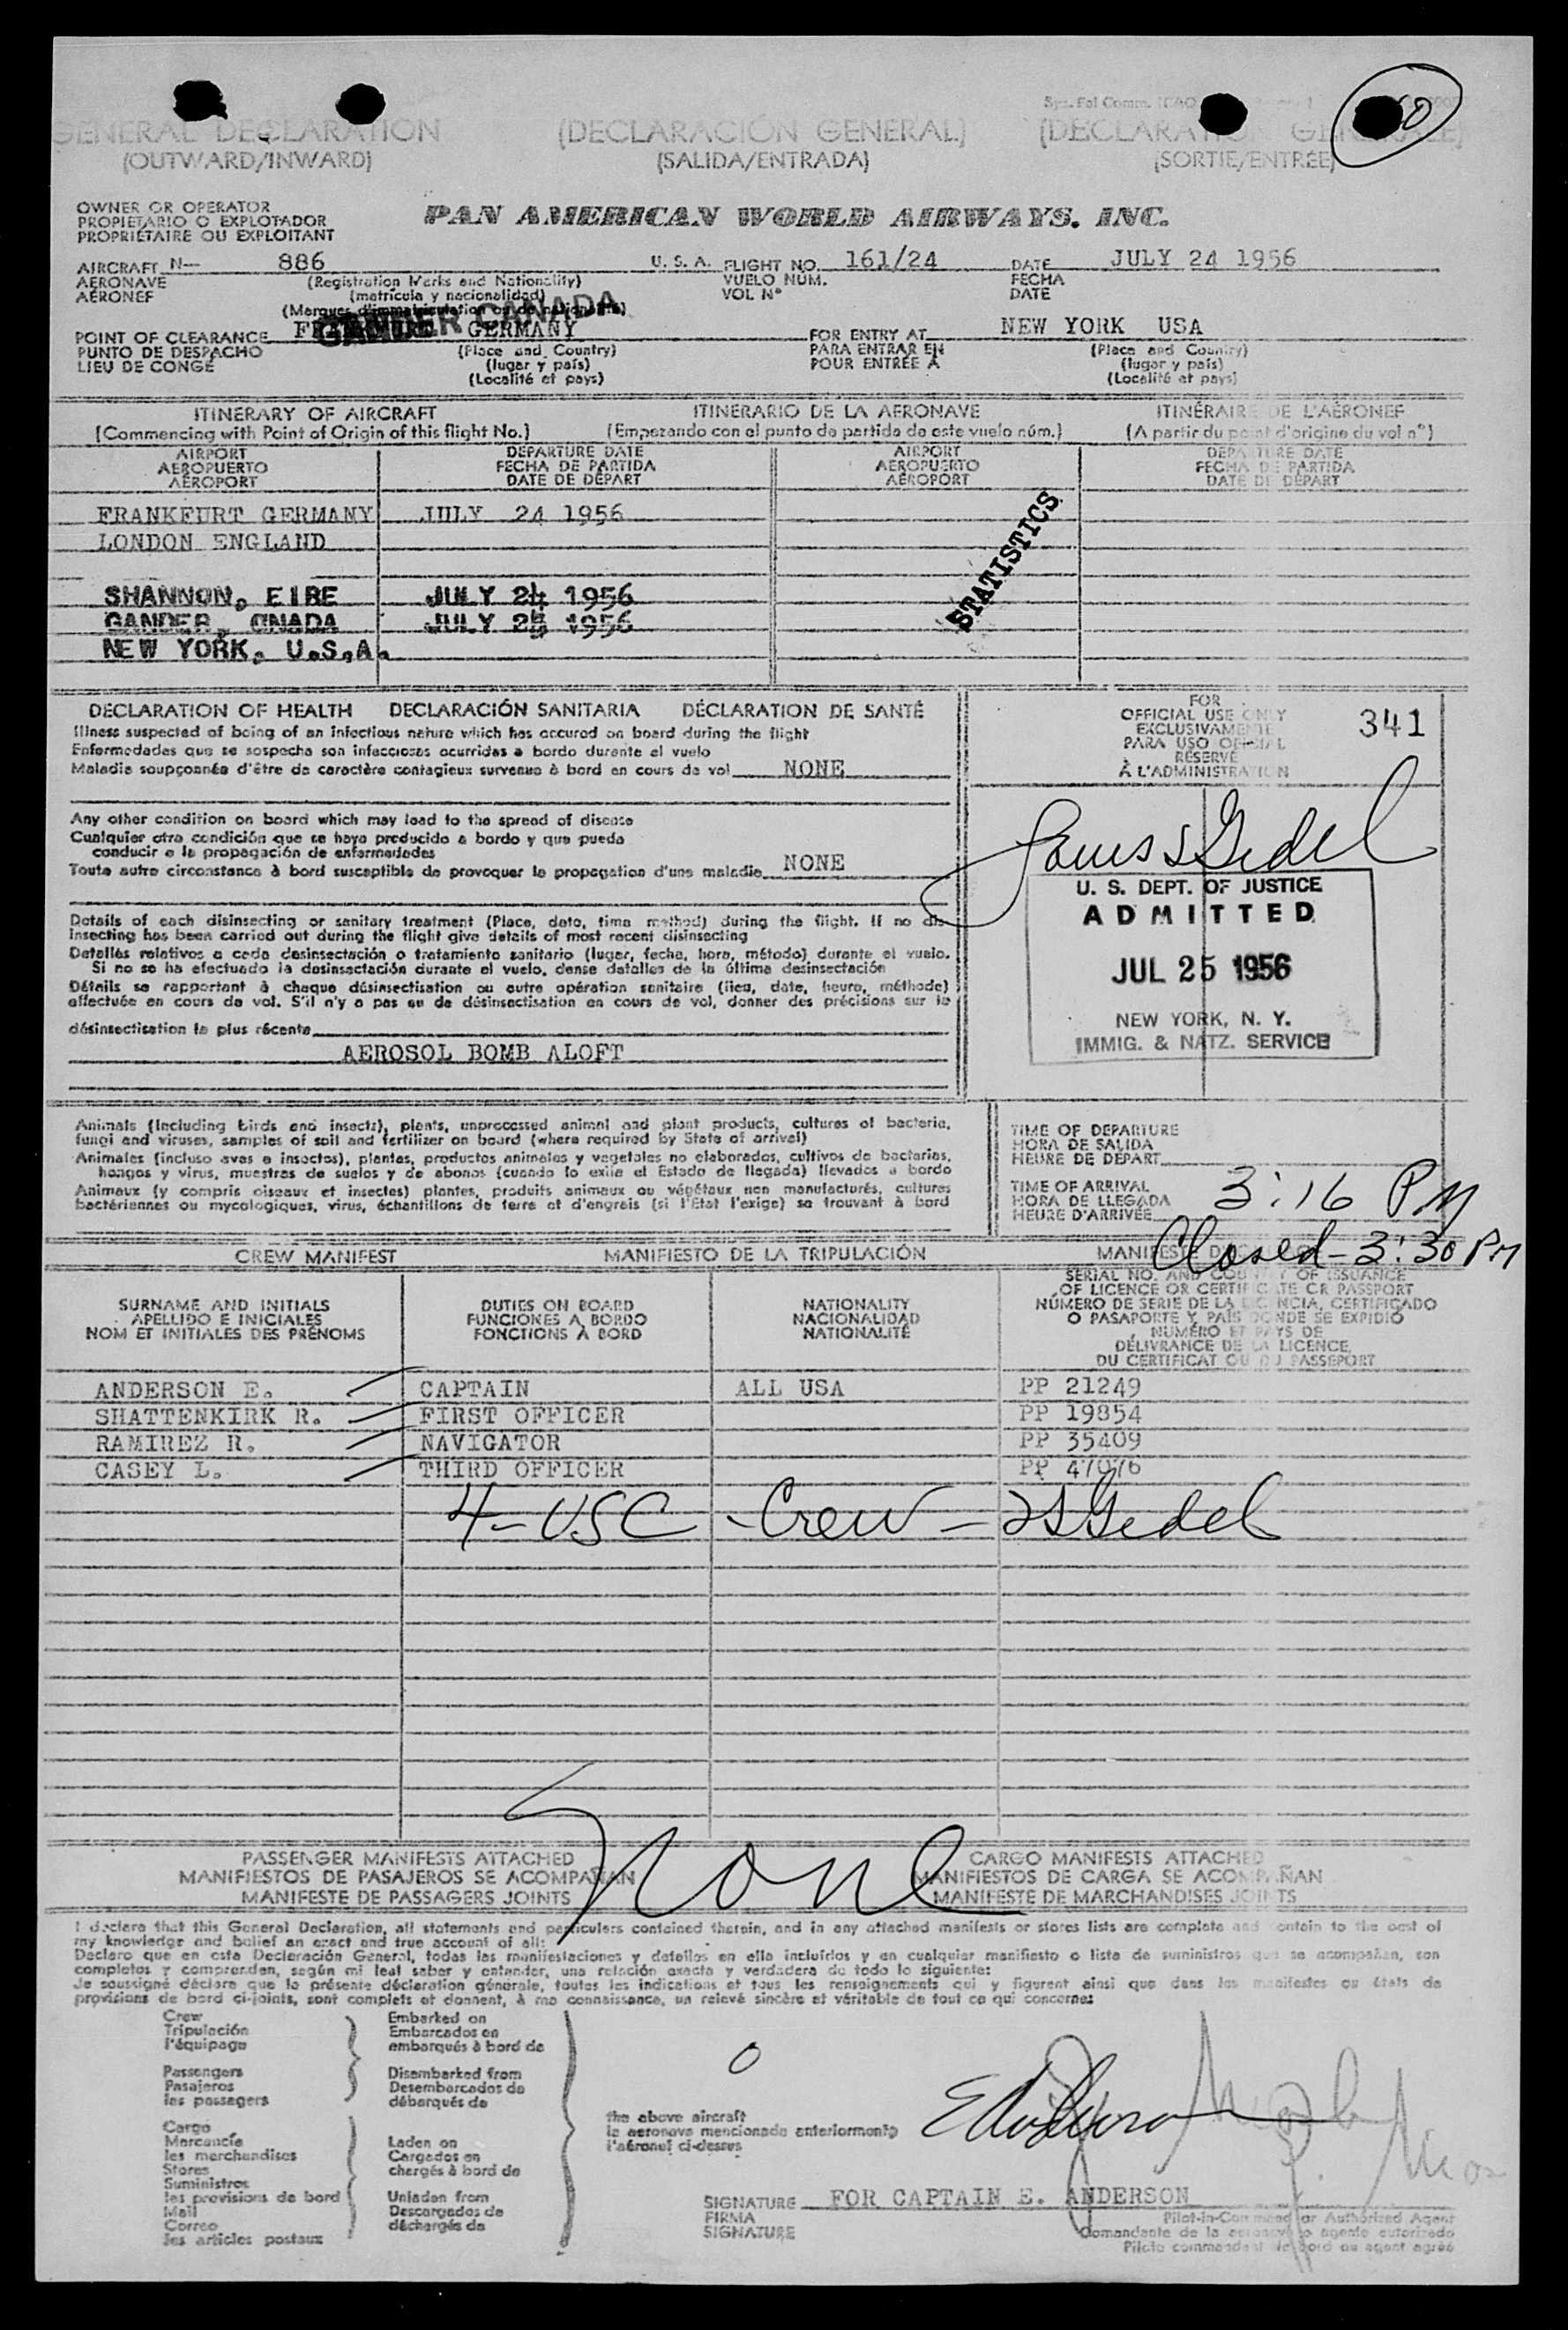 GENERAL DECLARATION (DECLARACIÓN GENERAL)
(OUTWARD/INWARD) (SALIDA/ENTRADA) (SORTIE/ENTRÉE)
OWNER OR OPERATOR
PROPIETARIO O EXPLOTADOR PAN AMERICAN WORLD AIRWAYS, INC.
PROPRIÉTAIRE OU EXPLOITANT
AIRCRAFT N— 886 U. S. A. FLIGHT NO. 161/24 DATE JULY 24 1956
AERONAVE (Registration Marks and Nationality) VUELO NÚM. FECHA
AÉRONEF (matrícula y nacionalidad) VOL Nº DATE
GANDER CANADA
POINT OF CLEARANCE GERMANY FOR ENTRY AT NEW YORK USA
PUNTO DE DESPACHO (Place and Country) PARA ENTRAR EN (Place and Country)
LIEU DE CONGÉ (lugar y país) POUR ENTRÉE A (lugar y país)
(Localité et pays) (Localité et pays)
ITINERARY OF AIRCRAFT ITINERARIO DE LA AERONAVE ITINÉRAIRE DE L'AÉRONEF
(Commencing with Point of Origin of this flight No.) (Empezando con el punto de partida de este vuelo núm.) (A partir du point d'origine du vol nº)
AIRPORT DEPARTURE DATE AIRPORT DEPARTURE DATE
AEROPUERTO FECHA DE PARTIDA AEROPUERTO FECHA DE PARTIDA
AÉROPORT DATE DE DÉPART AÉROPORT DATE DE DÉPART
FRANKFURT GERMANY JULY 24 1956
LONDON ENGLAND
STATISTICS
SHANNON, EIRE JULY 24 1956
GANDER, CNADA JULY 25 1956
NEW YORK, U.S.A.
DECLARATION OF HEALTH DECLARACIÓN SANITARIA DÉCLARATION DE SANTÉ
Illness suspected of being of an infectious nature which has occured on board during the flight
Enfermedades que se sospecha son infecciosas ocurridas a bordo durante el vuelo
Maladie soupçonnée d'être de caractère contagieux survenue à bord en cours de vol NONE
Any other condition on board which may lead to the spread of disease
Cualquier otra condición que se haya producido a bordo y que pueda
conducir a la propagación de enfermedades
Toute autre circonstance à bord susceptible de provoquer la propagation d'une maladie NONE
Details of each disinsecting or sanitary treatment (Place, date, time method) during the flight. If no dis-
insecting has been carried out during the flight give details of most recent disinsecting
Detalles relativos a cada desinsectación o tratamiento sanitario (lugar, fecha, hora, método) durante el vuelo.
Si no se ha efectuado la desinsectación durante el vuelo, dense detalles de la última desinsectación
Détails se rapportant à chaque désinsectisation ou autre opération sanitaire (lieu, date, heure, méthode)
effectuée en cours de vol. S'il n'y a pas eu de désinsectisation en cours de vol, donner des précisions sur la
désinsectisation la plus récente
AEROSOL BOMB ALOFT
FOR
OFFICIAL USE ONLY 341
EXCLUSIVAMENTE
PARA USO OFICIAL
RÉSERVÉ
À L'ADMINISTRATION
U. S. DEPT. OF JUSTICE
ADMITTED
JUL 25 1956
NEW YORK, N. Y.
IMMIG. & NATZ. SERVICE
Animals (Including birds and insects), plants, unprocessed animal and plant products, cultures of bacteria,
fungi and viruses, samples of soil and fertilizer on board (where required by State of arrival)
Animales (incluso aves e insectos), plantas, productos animales y vegetales no elaborados, cultivos de bacterias,
hongos y virus, muestras de suelos y de abonos (cuando lo exija el Estado de llegada) llevados a bordo
Animaux (y compris oiseaux et insectes) plantes, produits animaux ou végétaux non manufacturés, cultures
bactériennes ou mycologiques, virus, échantillons de terre et d'engrais (si l'État l'exige) se trouvant à bord
TIME OF DEPARTURE
HORA DE SALIDA
HEURE DE DÉPART
TIME OF ARRIVAL 3:16 PM
HORA DE LLEGADA
HEURE D'ARRIVÉE
Closed - 3:30 PM
CREW MANIFEST MANIFIESTO DE LA TRIPULACIÓN
SURNAME AND INITIALS DUTIES ON BOARD NATIONALITY
APELLIDO E INICIALES FUNCIONES A BORDO NACIONALIDAD
NOM ET INITIALES DES PRÉNOMS FONCTIONS À BORD NATIONALITÉ
SERIAL NO. AND COUNTRY OF ISSUANCE
OF LICENCE OR CERTIFICATE OR PASSPORT
NÚMERO DE SERIE DE LA LICENCIA, CERTIFICADO
O PASAPORTE Y PAÍS DONDE SE EXPIDIÓ
NUMÉRO ET PAYS DE
DÉLIVRANCE DE LA LICENCE,
DU CERTIFICAT OU DU PASSEPORT
ANDERSON E. CAPTAIN ALL USA PP 21249
SHATTENKIRK R. FIRST OFFICER PP 19854
RAMIREZ R. NAVIGATOR PP 35409
CASEY L. THIRD OFFICER PP 47076
4 - USC - Crew -
None
PASSENGER MANIFESTS ATTACHED CARGO MANIFESTS ATTACHED
MANIFIESTOS DE PASAJEROS SE ACOMPAÑAN MANIFIESTOS DE CARGA SE ACOMPAÑAN
MANIFESTE DE PASSAGERS JOINTS MANIFESTE DE MARCHANDISES JOINTS
I declare that this General Declaration, all statements and particulars contained therein, and in any attached manifests or stores lists are complete and contain to the best of
my knowledge and belief an exact and true account of all:
Declaro que en esta Declaración General, todas las manifestaciones y detalles en ella incluídos y en cualquier manifiesto o lista de suministros que se acompañan, son
completos y comprenden, según mi leal saber y entender, una relación exacta y verdadera de todo lo siguiente:
Je soussigné déclare que la présente déclaration générale, toutes les indications et tous les renseignements qui y figurent ainsi que dans les manifestes ou états de
provisions de bord ci-joints, sont complets et donnent, à ma connaissance, un relevé sincère et véritable de tout ce qui concerne:
Crew Embarked on
Tripulación Embarcados en
l'équipage embarqués à bord de
Passengers Disembarked from
Pasajeros Desembarcados de
les passagers débarqués de
Cargo
Mercancía Laden on
les marchandises Cargados en
Stores chargés à bord de
Suministros
les provisions de bord Unladen from
Mail Descargados de
Correo déchargés de
les articles postaux
the above aircraft
la aeronave mencionada anteriormente
l'aéronef ci-dessus
SIGNATURE FOR CAPTAIN E. ANDERSON
FIRMA Pilot-in-Command or Authorized Agent
SIGNATURE Comandante de la aeronave o agente autorizado
Pilote commandant de bord ou agent agréé